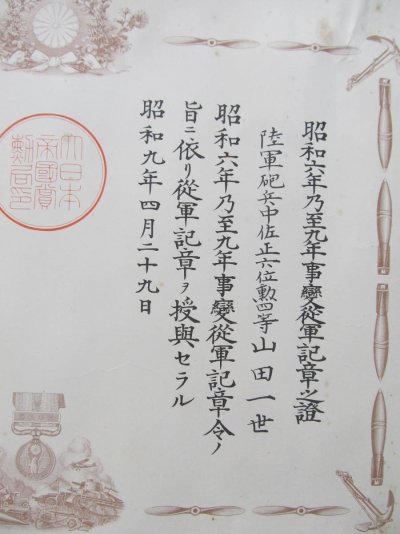 昭和六年乃至九年事變從軍記章之證
陸軍砲兵中佐正六位勲四等山田一世
昭和六年乃至九年事變從軍記章令ノ
旨ニ依リ從軍記章ヲ授與セラル
昭和九年四月二十九日
大日本
帝國賞
勲局印